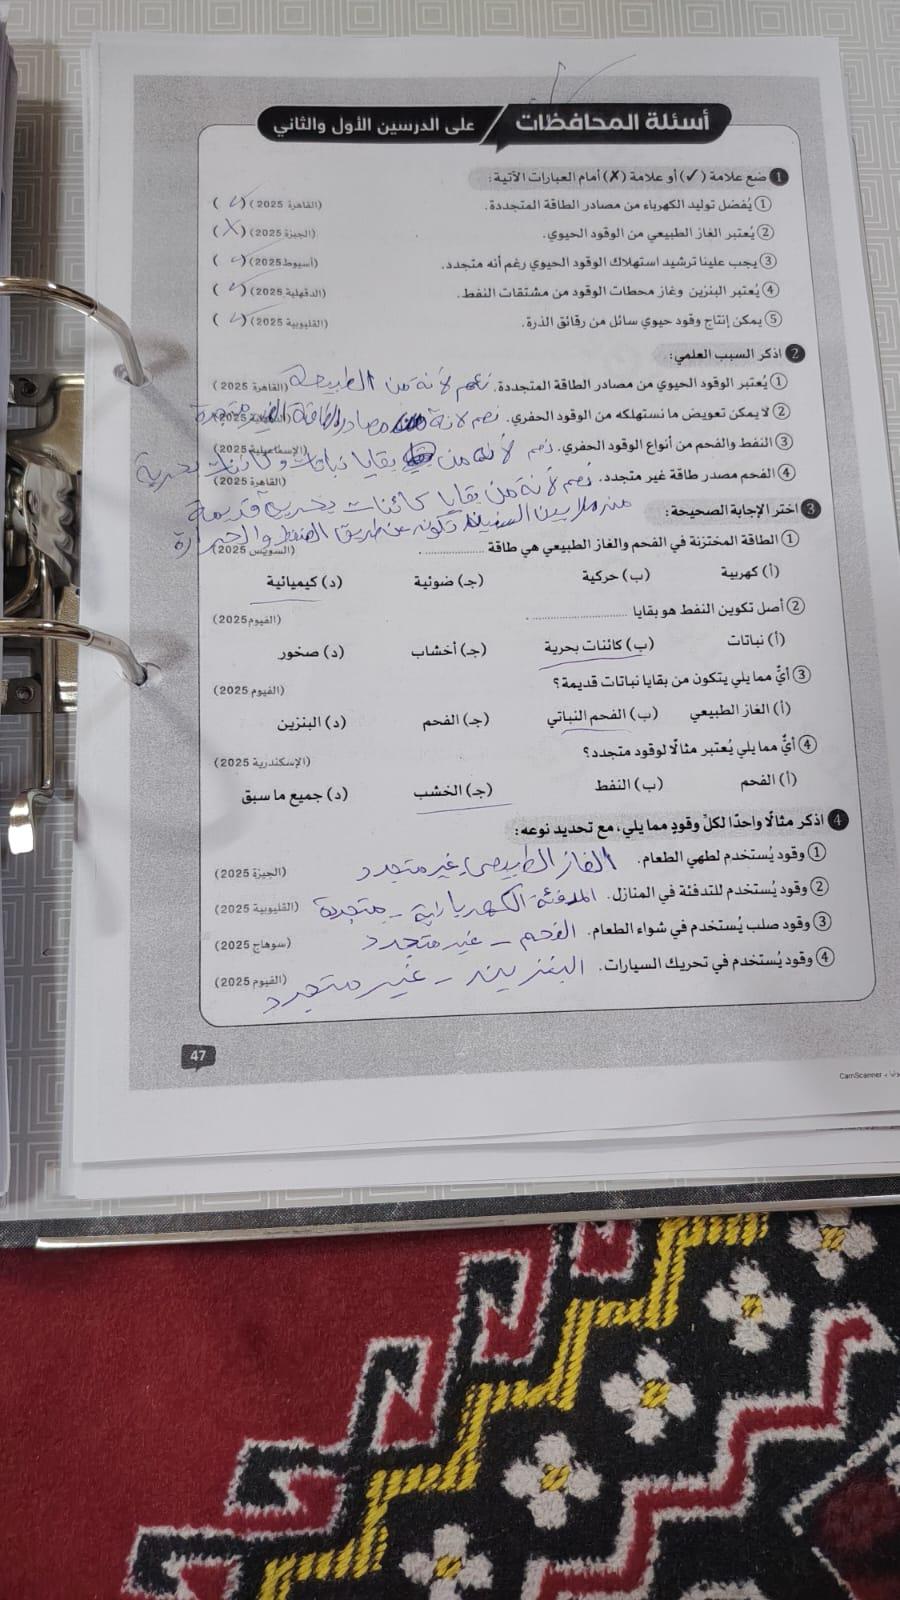 أسئلة المحافظات على الدرسين الأول والثاني
1 ضع علامة (✓) أو علامة (✗) أمام العبارات الآتية:
① يُفضل توليد الكهرباء من مصادر الطاقة المتجددة. (القاهرة 2025) (✓)
② يُعتبر الغاز الطبيعي من الوقود الحيوي. (الجيزة 2025) (X)
③ يجب علينا ترشيد استهلاك الوقود الحيوي رغم أنه متجدد. (أسيوط 2025) (✓)
④ يُعتبر البنزين وغاز محطات الوقود من مشتقات النفط. (الدقهلية 2025) (✓)
⑤ يمكن إنتاج وقود حيوي سائل من رقائق الذرة. (القليوبية 2025) (✓)
2 اذكر السبب العلمي:
① يُعتبر الوقود الحيوي من مصادر الطاقة المتجددة. نعم لأنه من الطبيعة (القاهرة 2025)
② لا يمكن تعويض ما نستهلكه من الوقود الحفري. نعم لانة مصادر الطاقة متجددة
③ النفط والفحم من أنواع الوقود الحفري. نعم لأنه من بقايا نباتات وكائنات بحرية (الإسماعيلية 2025)
④ الفحم مصدر طاقة غير متجدد. نعم لأنة من بقايا كائنات بحرية قديمة (القاهرة 2025)
منذ ملايين السنين تكونه عن طريق الضغط والحرارة
3 اختر الإجابة الصحيحة:
① الطاقة المختزنة في الفحم والغاز الطبيعي هي طاقة .............. (السويس 2025)
(أ) كهربية (ب) حركية (جـ) ضوئية (د) كيميائية
② أصل تكوين النفط هو بقايا .............. (الفيوم 2025)
(أ) نباتات (ب) كائنات بحرية (جـ) أخشاب (د) صخور
③ أيٌّ مما يلي يتكون من بقايا نباتات قديمة؟ (الفيوم 2025)
(أ) الغاز الطبيعي (ب) الفحم النباتي (جـ) الفحم (د) البنزين
④ أيٌّ مما يلي يُعتبر مثالًا لوقود متجدد؟ (الإسكندرية 2025)
(أ) الفحم (ب) النفط (جـ) الخشب (د) جميع ما سبق
4 اذكر مثالًا واحدًا لكلِّ وقودٍ مما يلي، مع تحديد نوعه:
① وقود يُستخدم لطهي الطعام. الغاز الطبيعي غير متجدد (الجيزة 2025)
② وقود يُستخدم للتدفئة في المنازل. المدفئة الكهربائية - متجددة (القليوبية 2025)
③ وقود صلب يُستخدم في شواء الطعام. الفحم - غير متجدد (سوهاج 2025)
④ وقود يُستخدم في تحريك السيارات. البنزين - غير متجدد (الفيوم 2025)
47
CamScanner